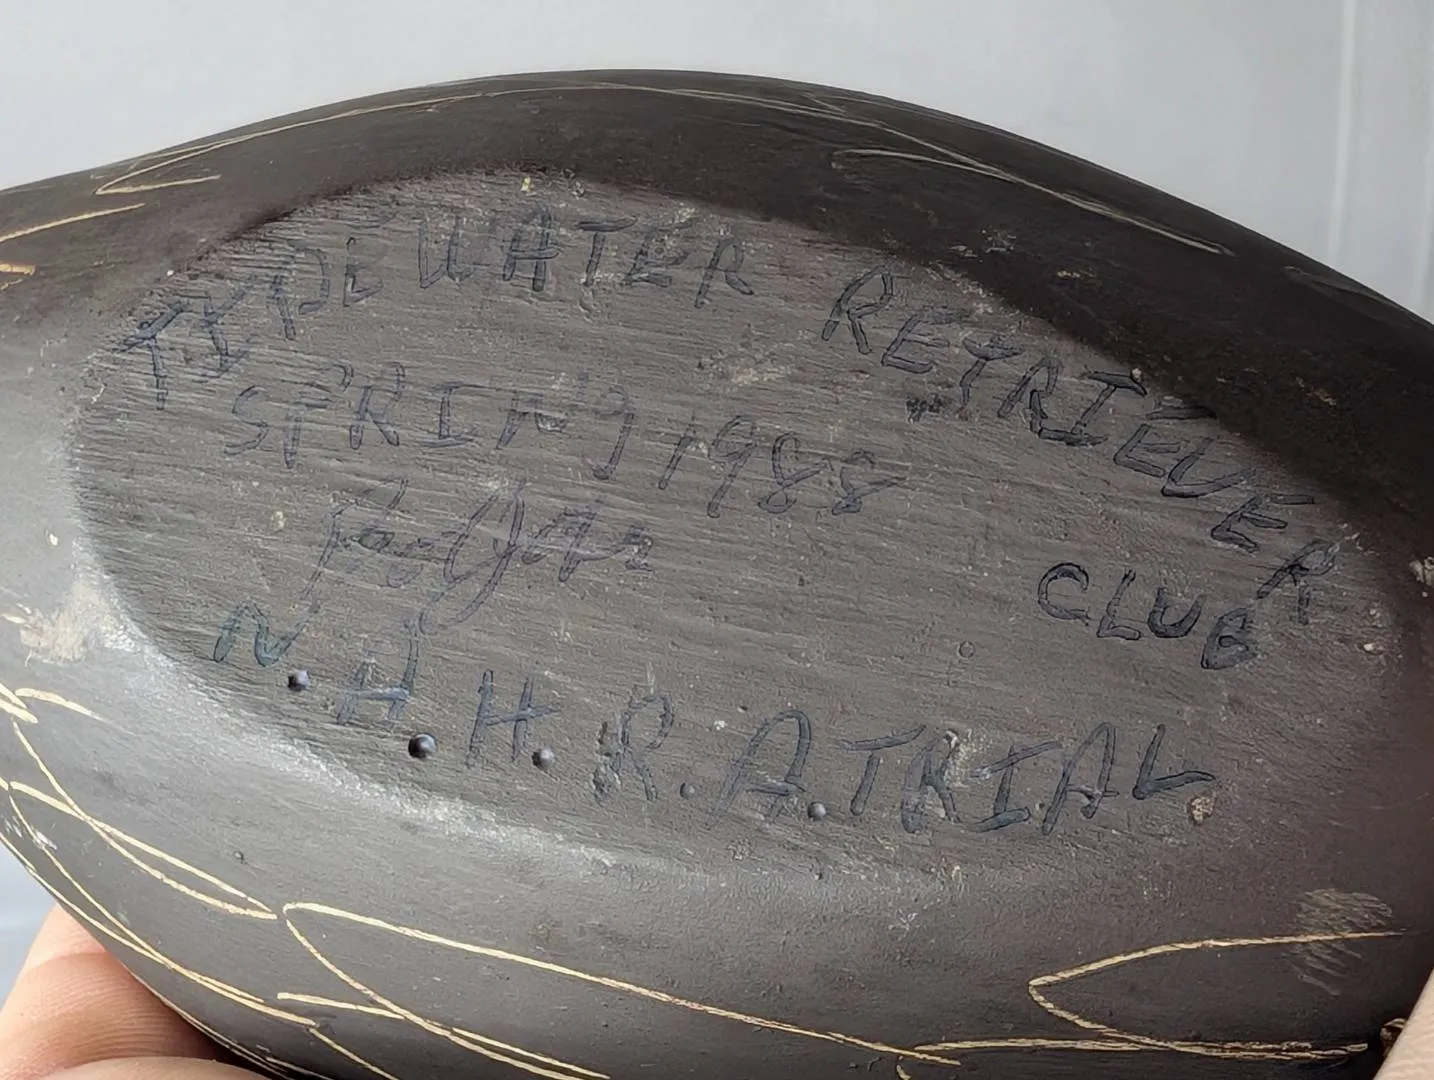 TIDEWATER RETRIEVER
CLUB
SPRING 1988
N.A.H.R.A. TRIAL